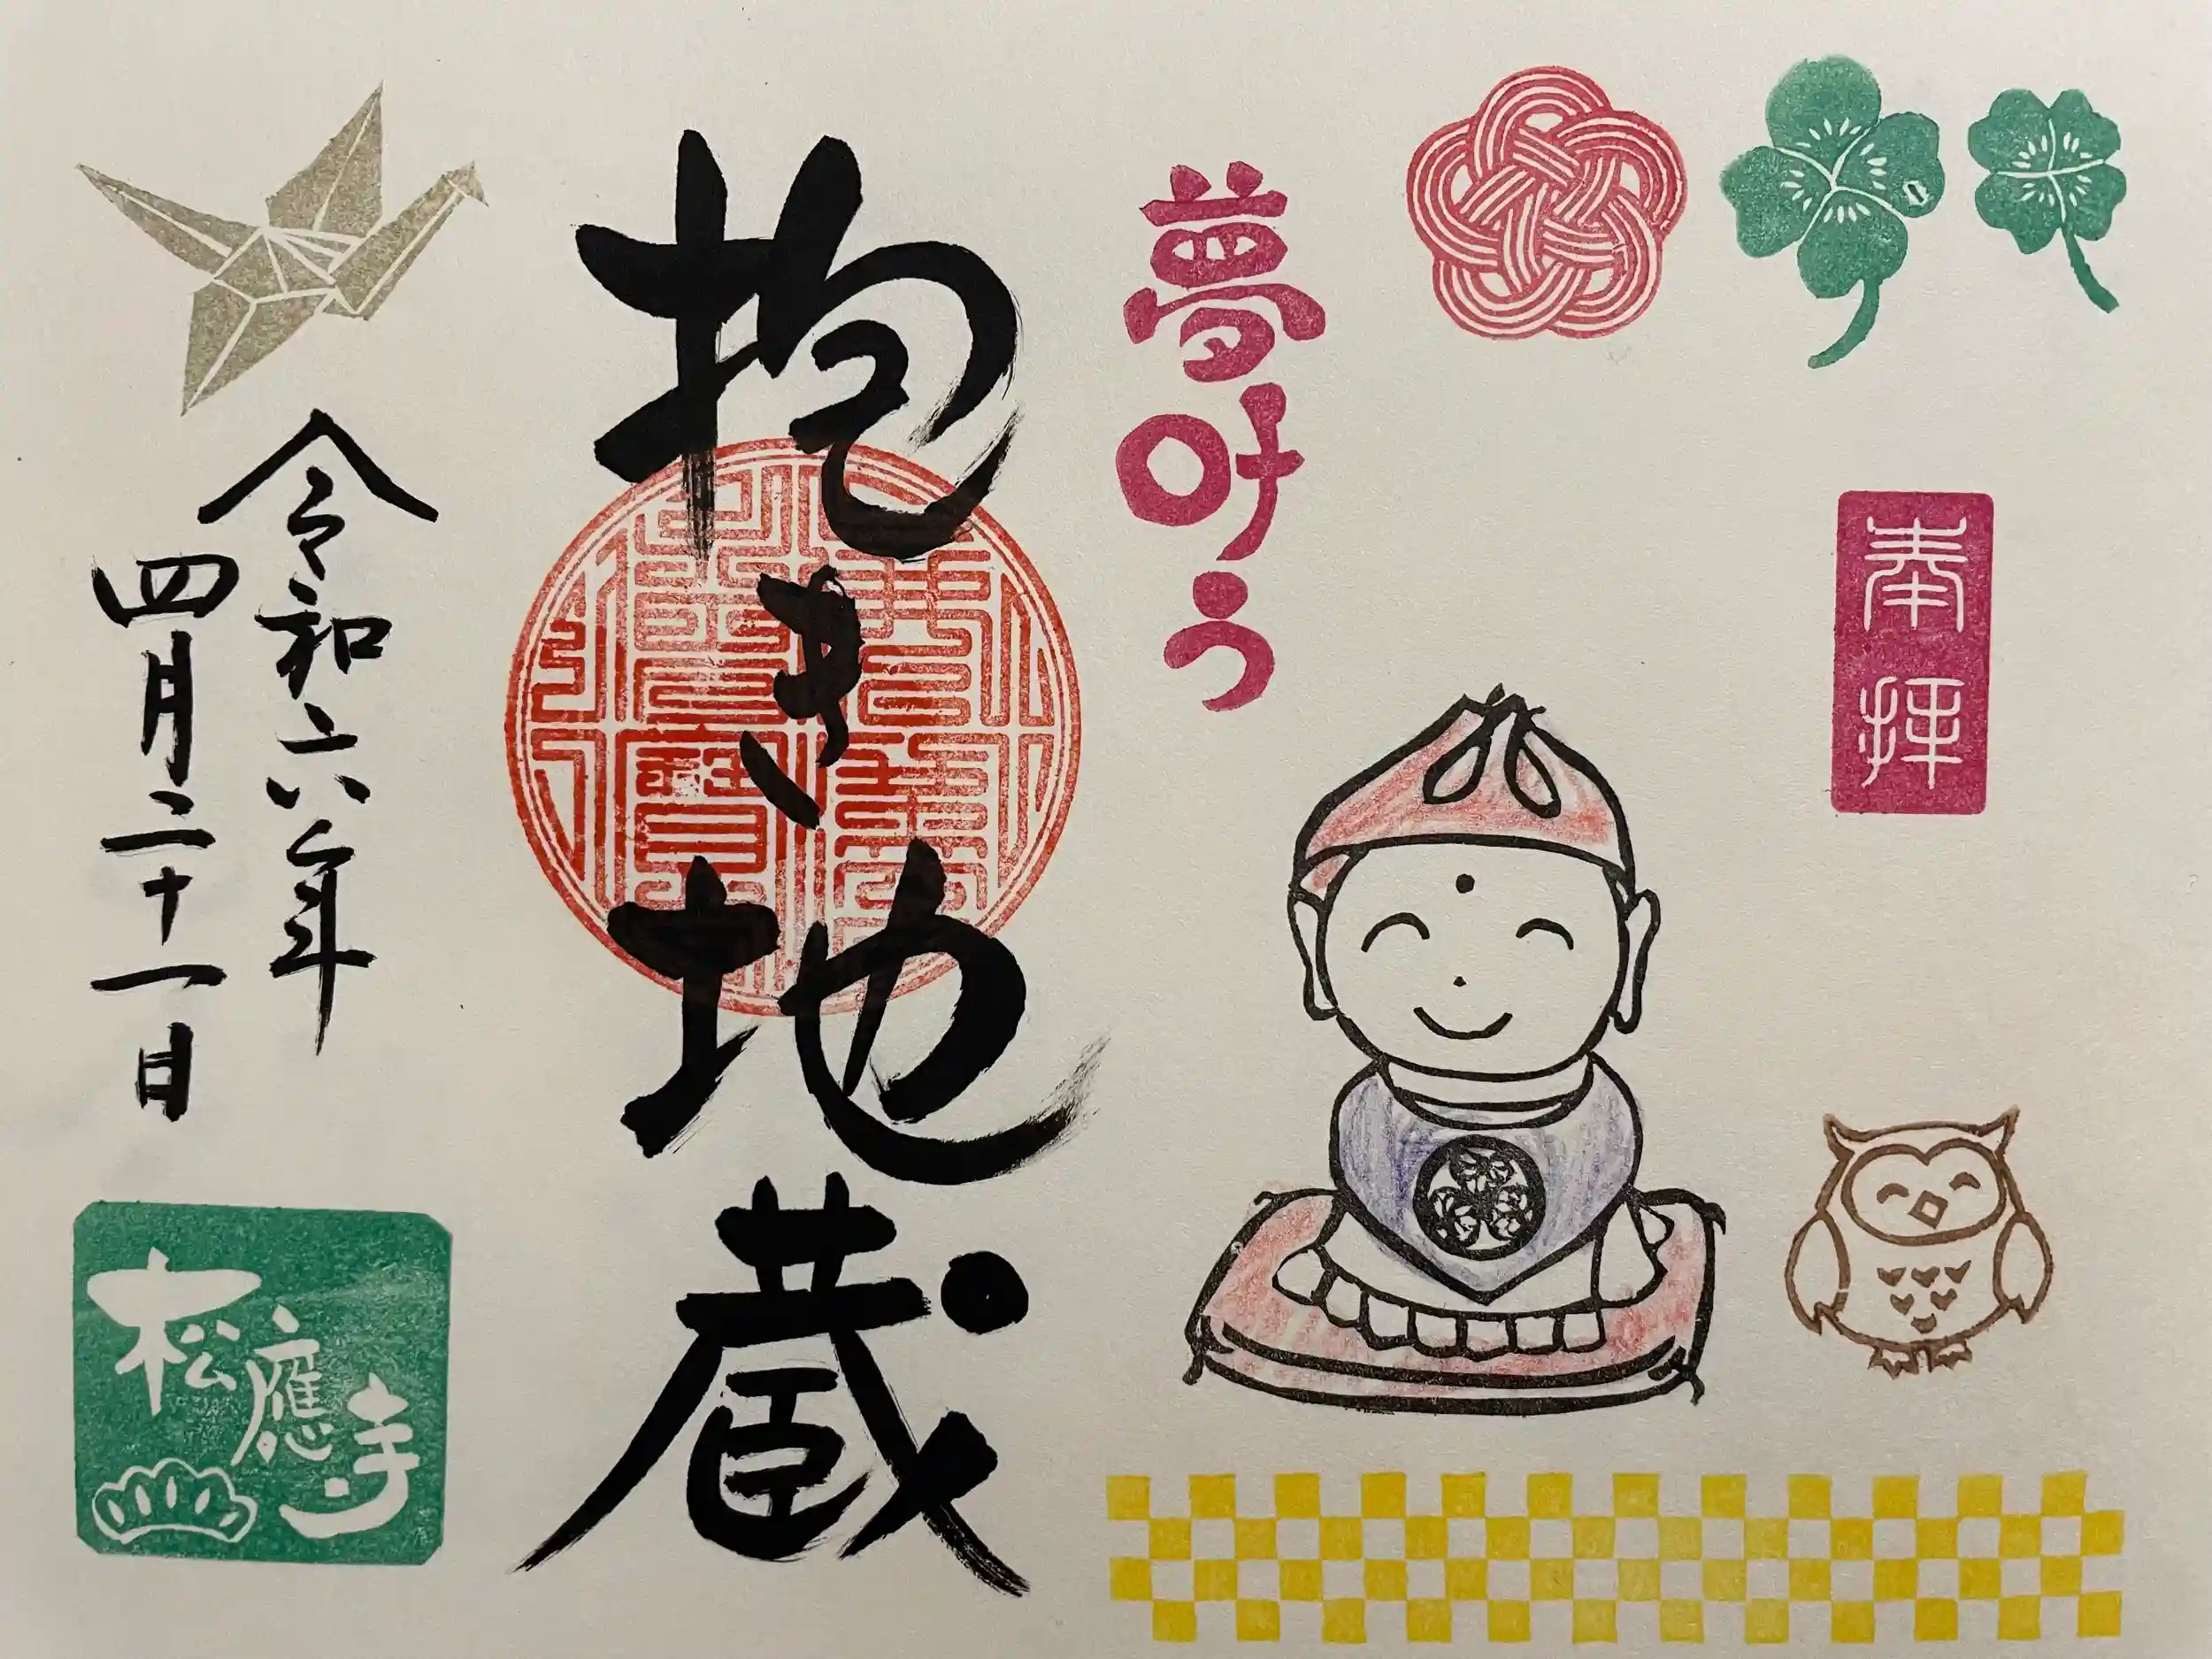 奉拝
夢叶う
抱き地蔵
仏法僧寶
令和六年
四月二十一日
松應寺